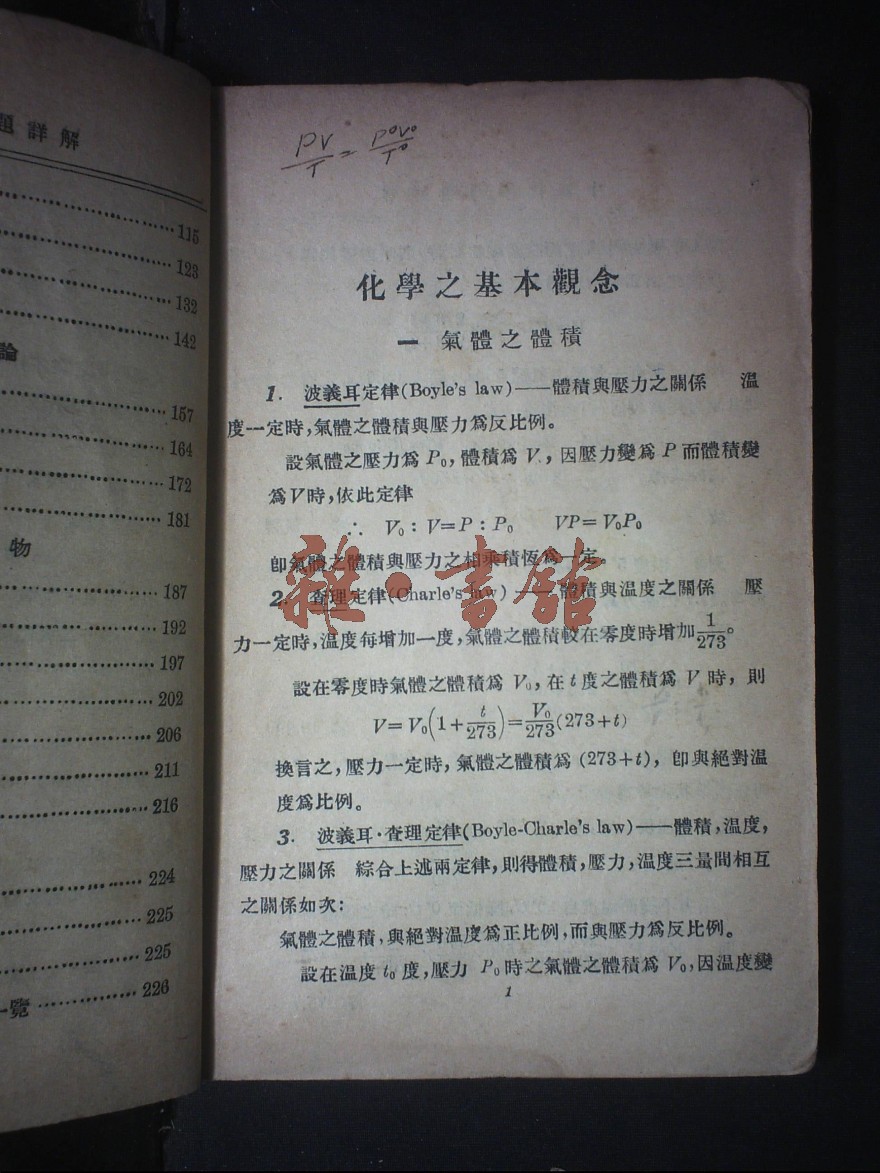 題詳解
115
123
132
142
論
157
164
172
181
物
187
192
197
202
206
211
216
224
225
225
一覽 226
PV/T = P⁰V₀/T⁰
化學之基本觀念
一 氣體之體積
1. 波義耳定律(Boyle's law)——體積與壓力之關係 溫
度一定時,氣體之體積與壓力爲反比例。
設氣體之壓力爲 P₀,體積爲 V,因壓力變爲 P 而體積變
爲V時,依此定律
∴ V₀ : V=P : P₀ VP=V₀P₀
卽氣體之體積與壓力之相乘積恆爲一定。
2. 查理定律(Charle's law)——體積與溫度之關係 壓
力一定時,溫度每增加一度,氣體之體積較在零度時增加1/273。
設在零度時氣體之體積爲 V₀,在 t 度之體積爲 V 時,則
V=V₀(1+t/273)=V₀/273(273+t)
換言之,壓力一定時,氣體之體積爲 (273+t),卽與絕對溫
度爲比例。
3. 波義耳·查理定律(Boyle-Charle's law)——體積,溫度,
壓力之關係 綜合上述兩定律,則得體積,壓力,溫度三量間相互
之關係如次:
氣體之體積,與絕對溫度爲正比例,而與壓力爲反比例。
設在溫度 t₀ 度,壓力 P₀ 時之氣體之體積爲 V₀,因溫度變
1
雜·書館